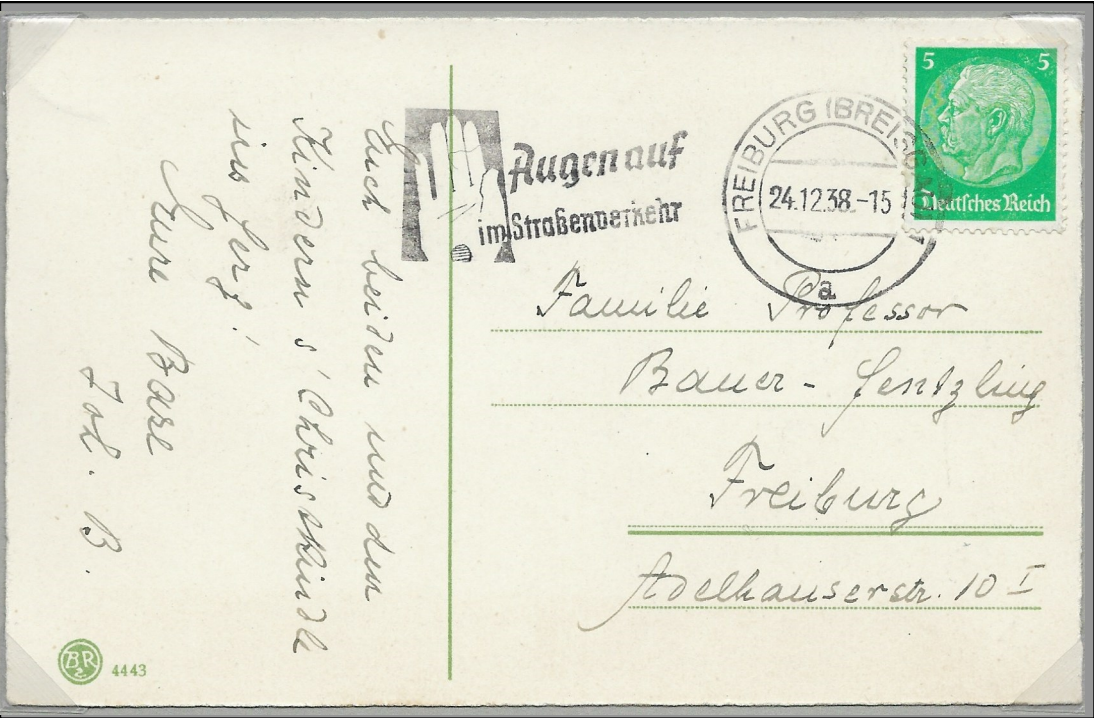 Euch beiden und den
Kindern s' Christkindle
ins Herz!
Eure Base
Joh. B.
Augen auf
im Straßenverkehr
FREIBURG (BREISGAU)
24.12.38.-15
a
5 5
Deutsches Reich
Familie Professor
Bauer - Hentzling
Freiburg
Adelhauserstr. 10 I
BR
4443